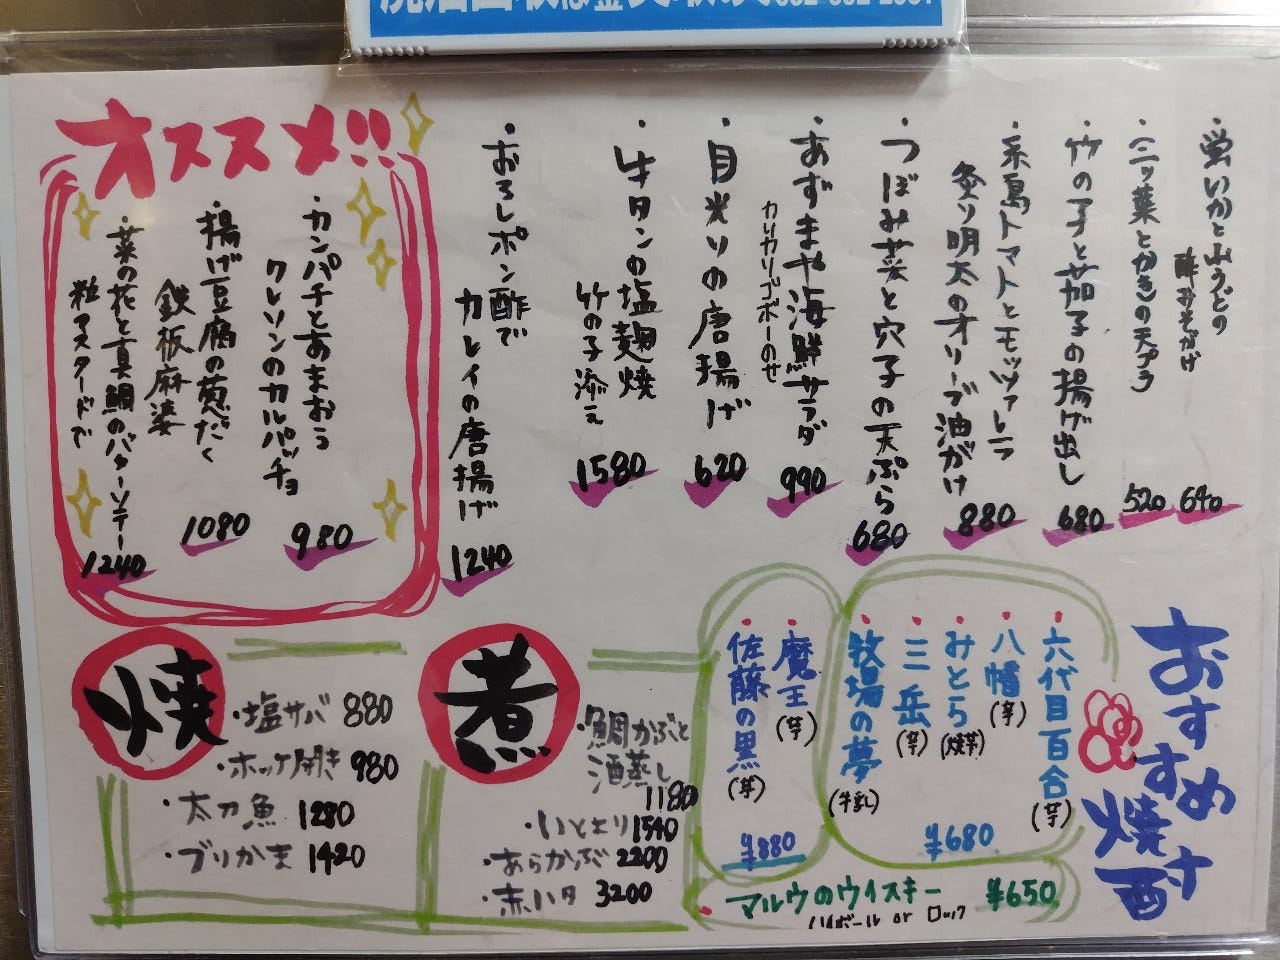 ・蛍いかと山うどの
酢みそがけ
640
・三ッ葉とかきの天プラ
520
・竹の子と茄子の揚げ出し
680
・糸島トマトとモッツァレラ
炙り明太のオリーブ油がけ
880
・つぼみ菜と穴子の天ぷら
680
・あずまや海鮮サラダ
カリカリゴボーのせ
990
・目光りの唐揚げ
620
・牛タンの塩麹焼
竹の子添え
1580
・おろしポン酢で
カレイの唐揚げ
1240
オススメ!!
・カンパチとあまおう
クレソンのカルパッチョ
980
・揚げ豆腐の葱だく
鉄板麻婆
1080
・菜の花と真鯛のバターソテー
粒マスタードで
1240
焼
・塩サバ 880
・ホッケ開き 980
・太刀魚 1280
・ブリかま 1420
煮
・鯛かぶと
酒蒸し
1180
・いとより 1540
・あらかぶ 2200
・赤ハタ 3200
おすすめ焼酎
・六代目百合(芋)
・八幡(芋)
・みとら(焼芋)
・三岳(芋)
・牧場の夢(牛乳)
¥680
・魔王(芋)
・佐藤の黒(芋)
¥880
・マルウのウイスキー ¥650
ハイボール or ロック